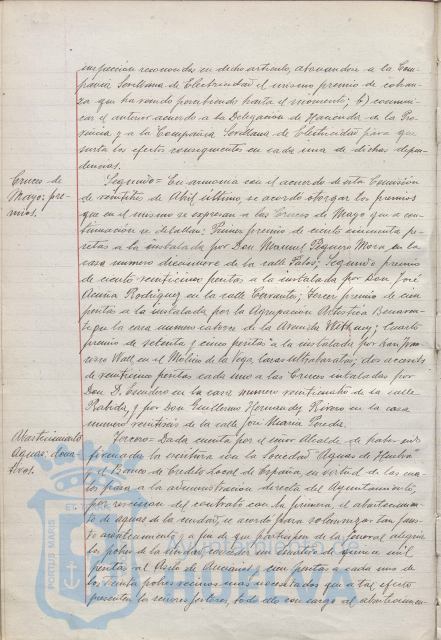 inspección reconocida en dicho artículo, abonandose a la Com-
pañia Sevillana de Electricidad el mismo premio de cobran-
za que ha venido percibiendo hasta el momento; b) comuni-
car el anterior acuerdo a la Delegacion de Hacienda de la Pro-
vincia y a la Compañia Sevillana de Electricidad para que
surta los efectos consiguientes en cada una de dichas depen-
dencias.
Cruces de
Mayo: pre-
mios.
Segundo = En armonia con el acuerdo de esta Comisión
de veintiseis de Abril ultimo se acordo otorgar los premios
que en el mismo se expresan a las Cruces de Mayo que a con-
tinuación se detallan: Primer premio de ciento cincuenta pe-
setas a la instalada por Don Manuel Piquero Mora en la
casa numero diecinueve de la calle Palos; Segundo premio
de ciento veinticinco pesetas a la instalada por Don José
Acuña Rodriguez en la calle Cervantes; Tercer premio de cien
pesetas a la instalada por la Agrupacion Artística Benaven-
te en la casa numero catorce de la Avenida Withney; Cuarto
premio de setenta y cinco pesetas a la instalada por Don Fran-
cisco Wall en el Molino de la Vega Casas Ultrabaratas; dos accesits
de veinticinco pesetas cada uno a las Cruces instaladas por
Don D. Escudero en la casa numero veinticuatro de la calle
Rabida, y por Don Guillermo Hernandez Rivero en la casa
numero veintiseis de la calle José Maria Pereda.
Abastecimiento
Aguas: dona-
tivos.
Tercero = Dada cuenta por el señor Alcalde de haber sido
firmada la escritura con la Sociedad "Aguas de Huelva"
y el Banco de Credito Local de España, en virtud de las cua-
les pasa a la administración directa del Ayuntamiento,
por rescision del contrato con la primera, el abastecimien-
to de aguas de la ciudad, se acordo para solemnizar tan faus-
to acontecimiento y a fin de que participen de la general alegria
los pobres de la ciudad conceder un donativo de quince mil
pesetas al Asilo de Ancianos, cien pesetas a cada uno de
los treinta pobres vecinos mas necesitados que a tal efecto
presenten los señores gestores, todo ello con cargo al abastecimien-
PORTUS MARIS
Ayuntamiento de
HUELVA